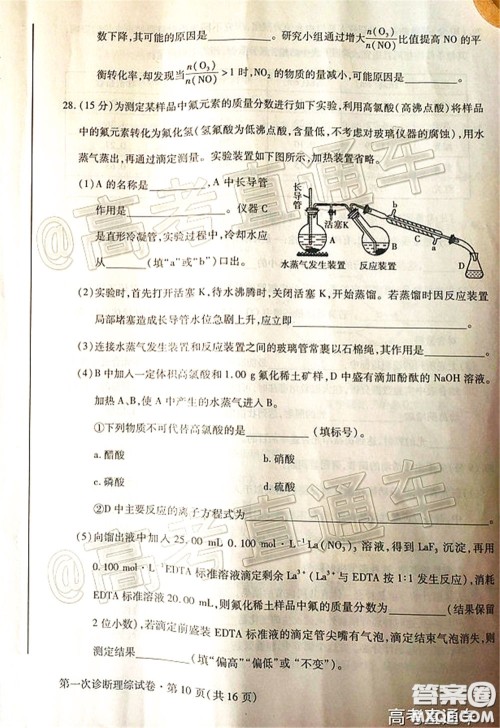 数下降,其可能的原因是________。研究小组通过增大n(O₃)/n(NO)比值提高 NO 的平
衡转化率,却发现当n(O₃)/n(NO)>1 时,NO₂ 的物质的量减小,可能原因是________。
28.(15 分)为测定某样品中氟元素的质量分数进行如下实验,利用高氯酸(高沸点酸)将样品
中的氟元素转化为氟化氢(氢氟酸为低沸点酸,含量低,不考虑对玻璃仪器的腐蚀),用水
蒸气蒸出,再通过滴定测量。实验装置如下图所示,加热装置省略。
(1)A 的名称是________,A 中长导管
作用是________。仪器 C
是直形冷凝管,实验过程中,冷却水应
从________(填“a”或“b”)口出。
长导管
活塞K
A
B
C
D
a
b
水蒸气发生装置 反应装置
(2)实验时,首先打开活塞 K,待水沸腾时,关闭活塞 K,开始蒸馏。若蒸馏时因反应装置
局部堵塞造成长导管水位急剧上升,应立即________。
(3)连接水蒸气发生装置和反应装置之间的玻璃管常裹以石棉绳,其作用是________。
(4)B 中加入一定体积高氯酸和 1.00 g 氟化稀土矿样,D 中盛有滴加酚酞的 NaOH 溶液。
加热 A、B,使 A 中产生的水蒸气进入 B。
①下列物质不可代替高氯酸的是________(填标号)。
a.醋酸 b.硝酸
c.磷酸 d.硫酸
②D 中主要反应的离子方程式为________。
(5)向馏出液中加入 25.00 mL 0.100 mol·L⁻¹La(NO₃)₃ 溶液,得到 LaF₃ 沉淀,再用
0.100 mol·L⁻¹EDTA 标准溶液滴定剩余 La³⁺(La³⁺与 EDTA 按 1∶1 发生反应),消耗
EDTA 标准溶液 20.00 mL,则氟化稀土样品中氟的质量分数为________(结果保留
2 位小数),若滴定前盛装 EDTA 标准溶液的滴定管尖嘴有气泡,滴定结束气泡消失,则
测定结果________(填“偏高”“偏低”或“不变”)。
第一次诊断理综试卷·第 10 页(共 16 页)
@高考直通车
@高考直通车
高考直通车
答案圈
MXQE.COM